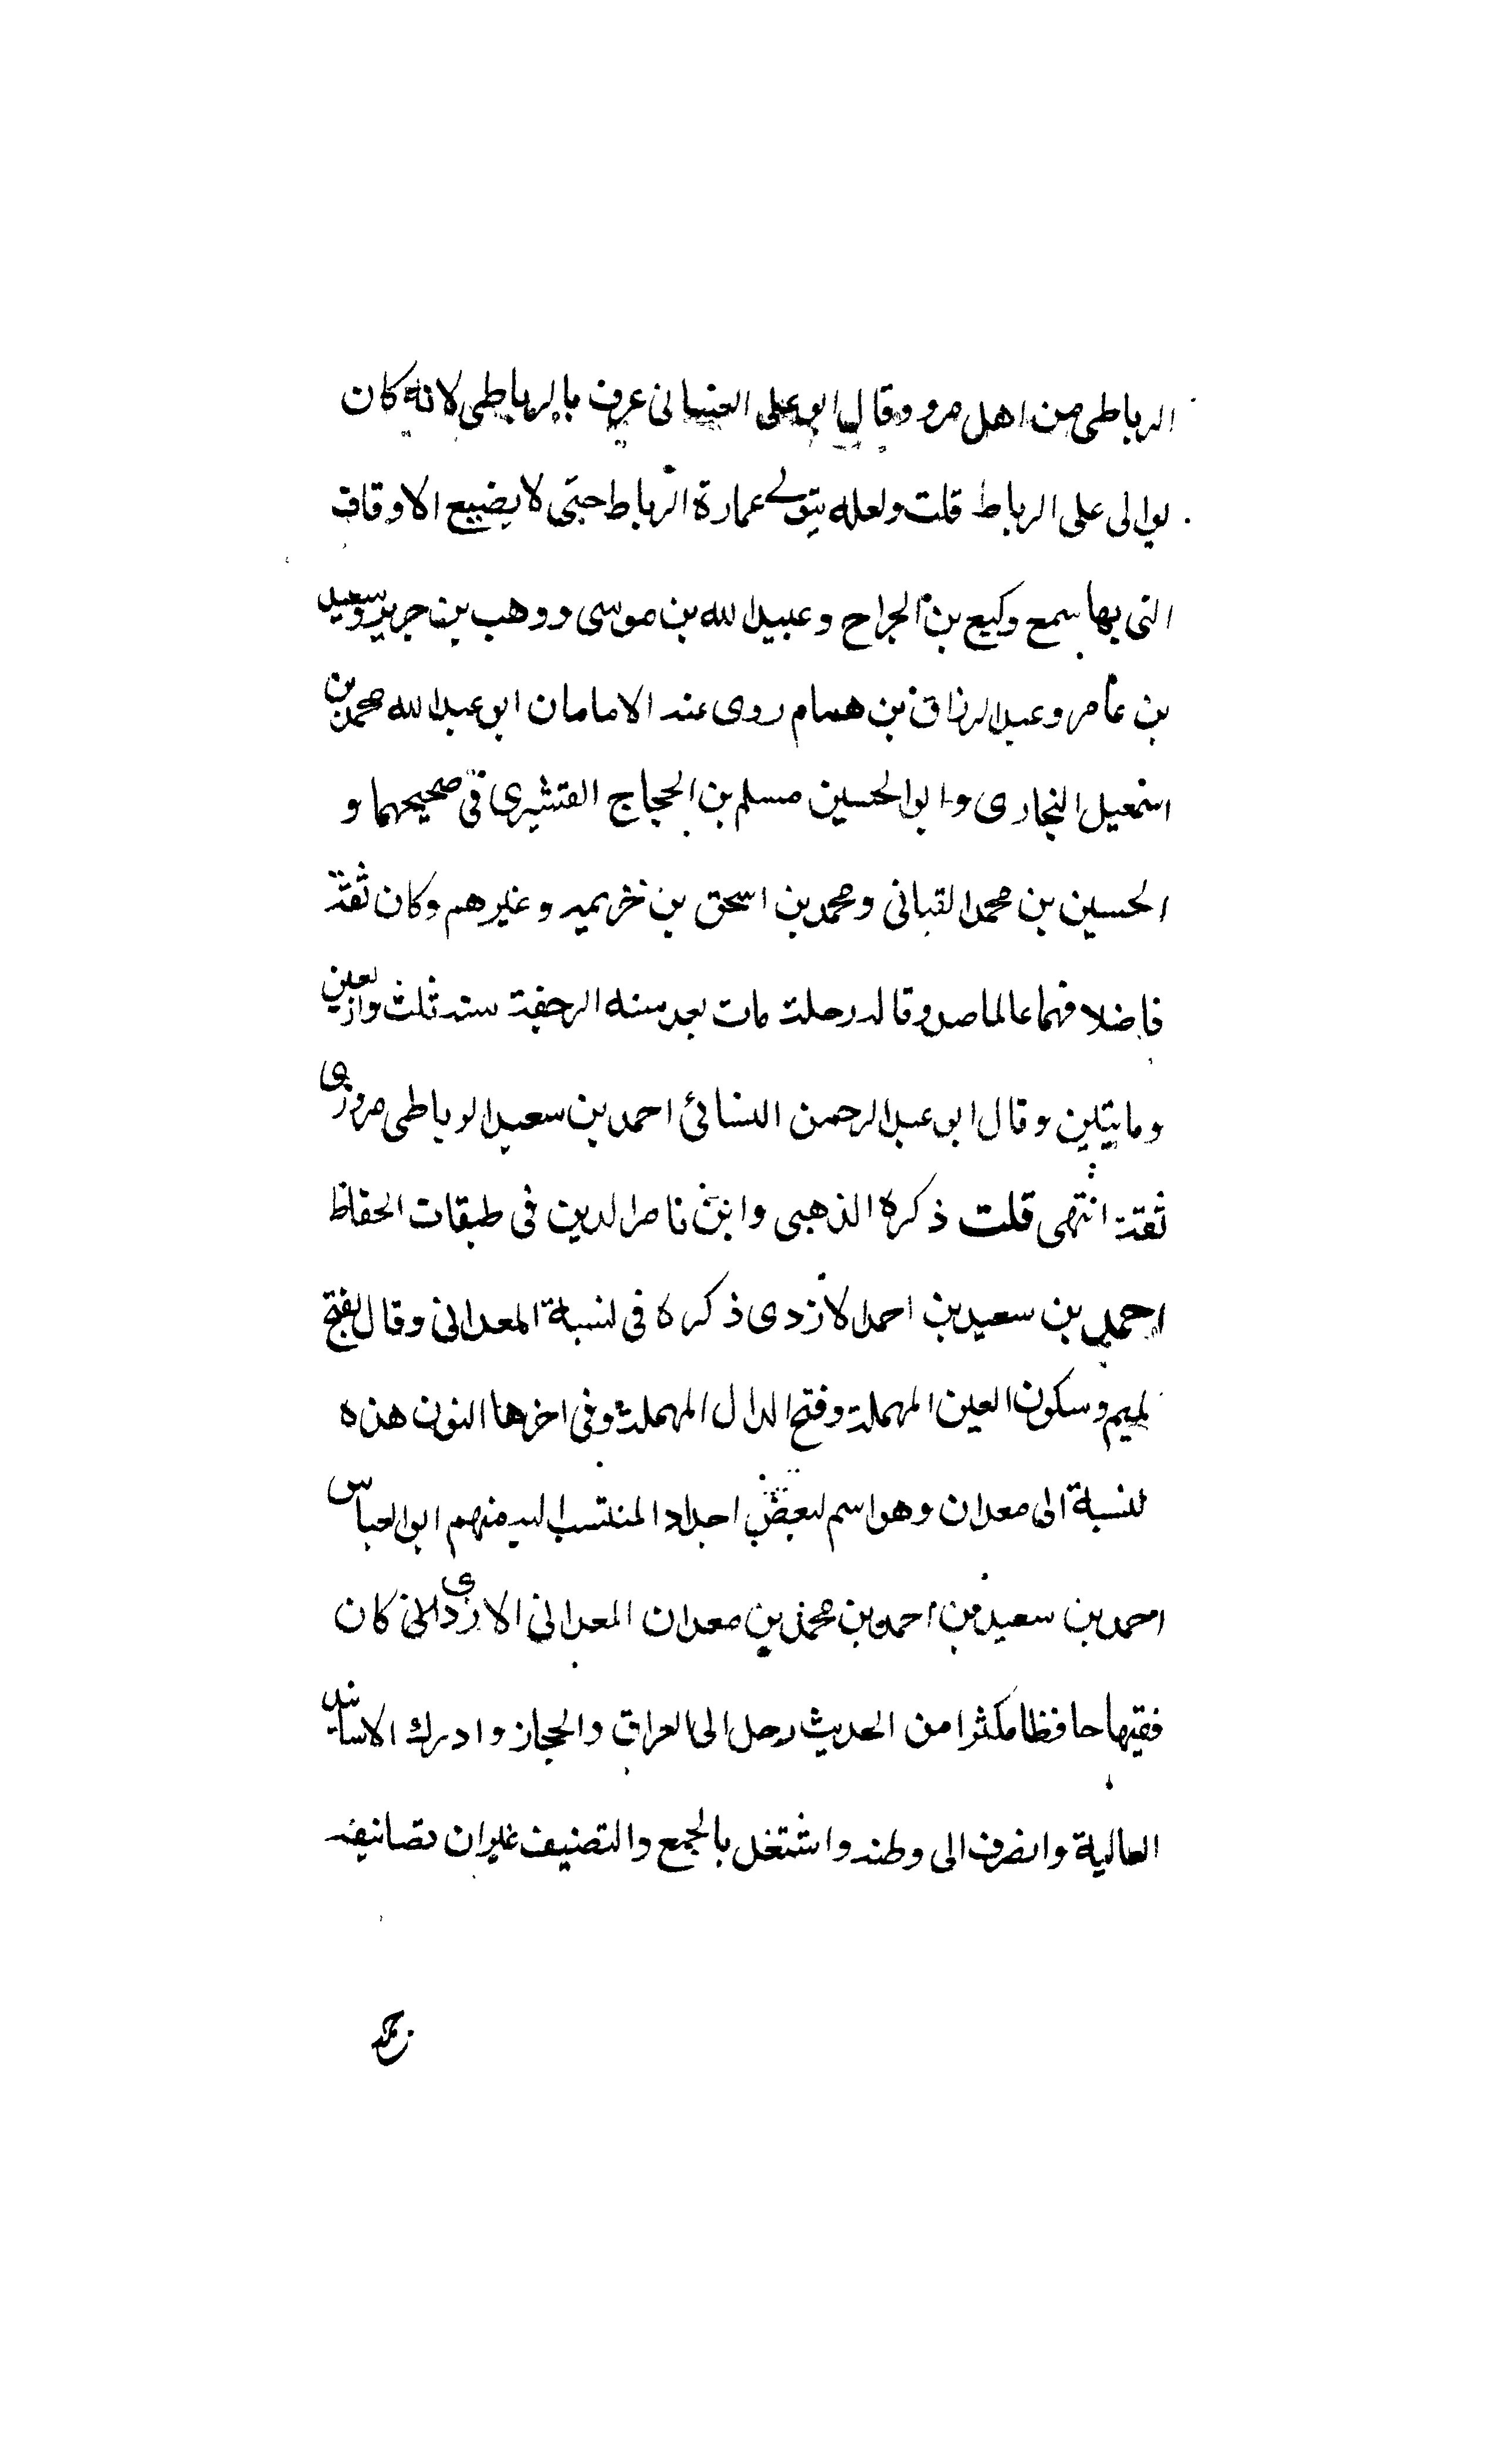 الرباطى من اهل مرو وقال ابو على الغسانى عرف بالرباطى لانه كان
يوالى على الرباط قلت ولعله يتولے عمارة الرباط حتى لا يضيع الاوقاف
التى بها سمع وكيع بن الجراح وعبيد الله بن موسى ووهب بن جرير وسعيد
بن عامر وعبد الرزاق بن همام روى عنه الامامان ابو عبد الله محمد بن
اسمعيل البخارى وابو الحسين مسلم بن الحجاج القشيرى فى صحيحهما و
الحسين بن محمد القبانى ومحمد بن اسحق بن خزيمه وغيرهم وكان ثقة
فاضلا فهما عالما صدوقا له رحلة مات بعد سنه الرجفة سنه ثلث واربعين
ومايتين وقال ابو عبد الرحمن النسائى احمد بن سعيد الرباطى مروزى
ثقة انتهى قلت ذكره الذهبى وابن ناصر الدين فى طبقات الحفاظ
احمد بن سعيد بن احمد الازدى ذكره فى لنسبة المعدانى وقال بفتح
لميم وسكون العين المهملة وفتح الدال المهملة وفى اخرها النون هذه
لنسبة الى معدان وهو اسم لبعض اجداد المنتسب اليه منهم ابو العباس
احمد بن سعيد بن احمد بن محمد بن معدان المعدانى الازدى كان
فقيها حافظا مكثرا من الحديث رحل الى العراق والحجاز وادرك الاسانيد
العالية وانصرف الى وطنه واشتغل بالجمع والتصنيف غير ان تصانيفه